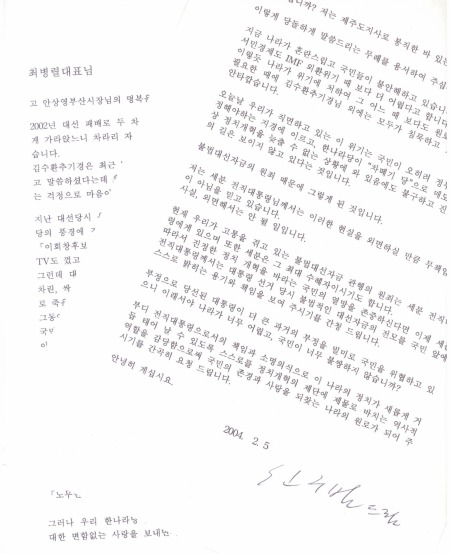 최병렬대표님
고 안상영부산시장님의 명복
2002년 대선 패배로 두 차
게 가라앉느니 차라리 자
습니다.
김수환추기경은 최근
고 말씀하셨다는데
는 걱정으로 마음
지난 대선당시
당의 풍경에
「이회창후보
TV도 껐고
그런데 대
차린, 싹
로 죽
그동
국
이
「노무
그러나 우리 한나라
대한 변함없는 사랑을 보내
저는 제주도지사로 봉직한 바 있는
이렇게 당돌하게 말씀드리는 무례를 용서하여 주십
지금 나라가 혼란스럽고 국민들이 불안해하고 있습니
서민경제도 IMF 외환위기 때 보다 더 어렵다고 합니다
이렇듯 나라가 위기에 처하여 그 어느 때 보다도 원로
필요한 때에 김수환추기경님 외에는 모두가 침묵하고
안타깝습니다.
오늘날 우리가 직면하고 있는 이 위기는 국민이 오히려 정
정해야하는 지경에 이르고, 한나라당이 "차떼기 당"으로 매도
상 정치개혁을 늦출 수 없는 상황에 와 있음에도 불구하고 진
의 길은 보이지 않고 있다는 것입니다.
불법대선자금의 원죄 때문에 그렇게 된 것입니다.
저는 세분 전직대통령님께서는 이러한 현실을 외면하실 만큼 무책임
이 아님을 믿고 있습니다.
사실, 외면해서는 안 될 일입니다.
현재 우리가 고통을 겪고 있는 불법대선자금 관행의 원죄는 세분 전직
령에게 있으며 또한 세분은 그 최대 수혜자이시기도 합니다.
따라서 진정한 정치 개혁을 바라는 국민의 열망을 존중하신다면 이제 세
전직대통령께서는 대통령 선거 당시 불법적인 대선자금의 전모를 국민 앞에
스스로 밝히는 용기와 책임을 보여 주시기를 간청 드립니다.
부정으로 당선된 대통령이 더 큰 과거의 부정을 빌미로 국민을 위협하고 있
으니 이래서야 나라가 너무 어렵고, 국민이 너무 불쌍하지 않습니까?
부디 전직대통령으로서의 책임과 소명의식으로 이 나라의 정치가 새롭게 거
듭 태어 날 수 있도록 스스로를 정치개혁의 제단에 제물로 바치는 역사적
역할을 감당함으로써 국민의 존경과 사랑을 되찾는 나라의 원로가 되어 주
시기를 간곡히 요청 드립니다.
안녕히 계십시요.
2004. 2. 5
드림